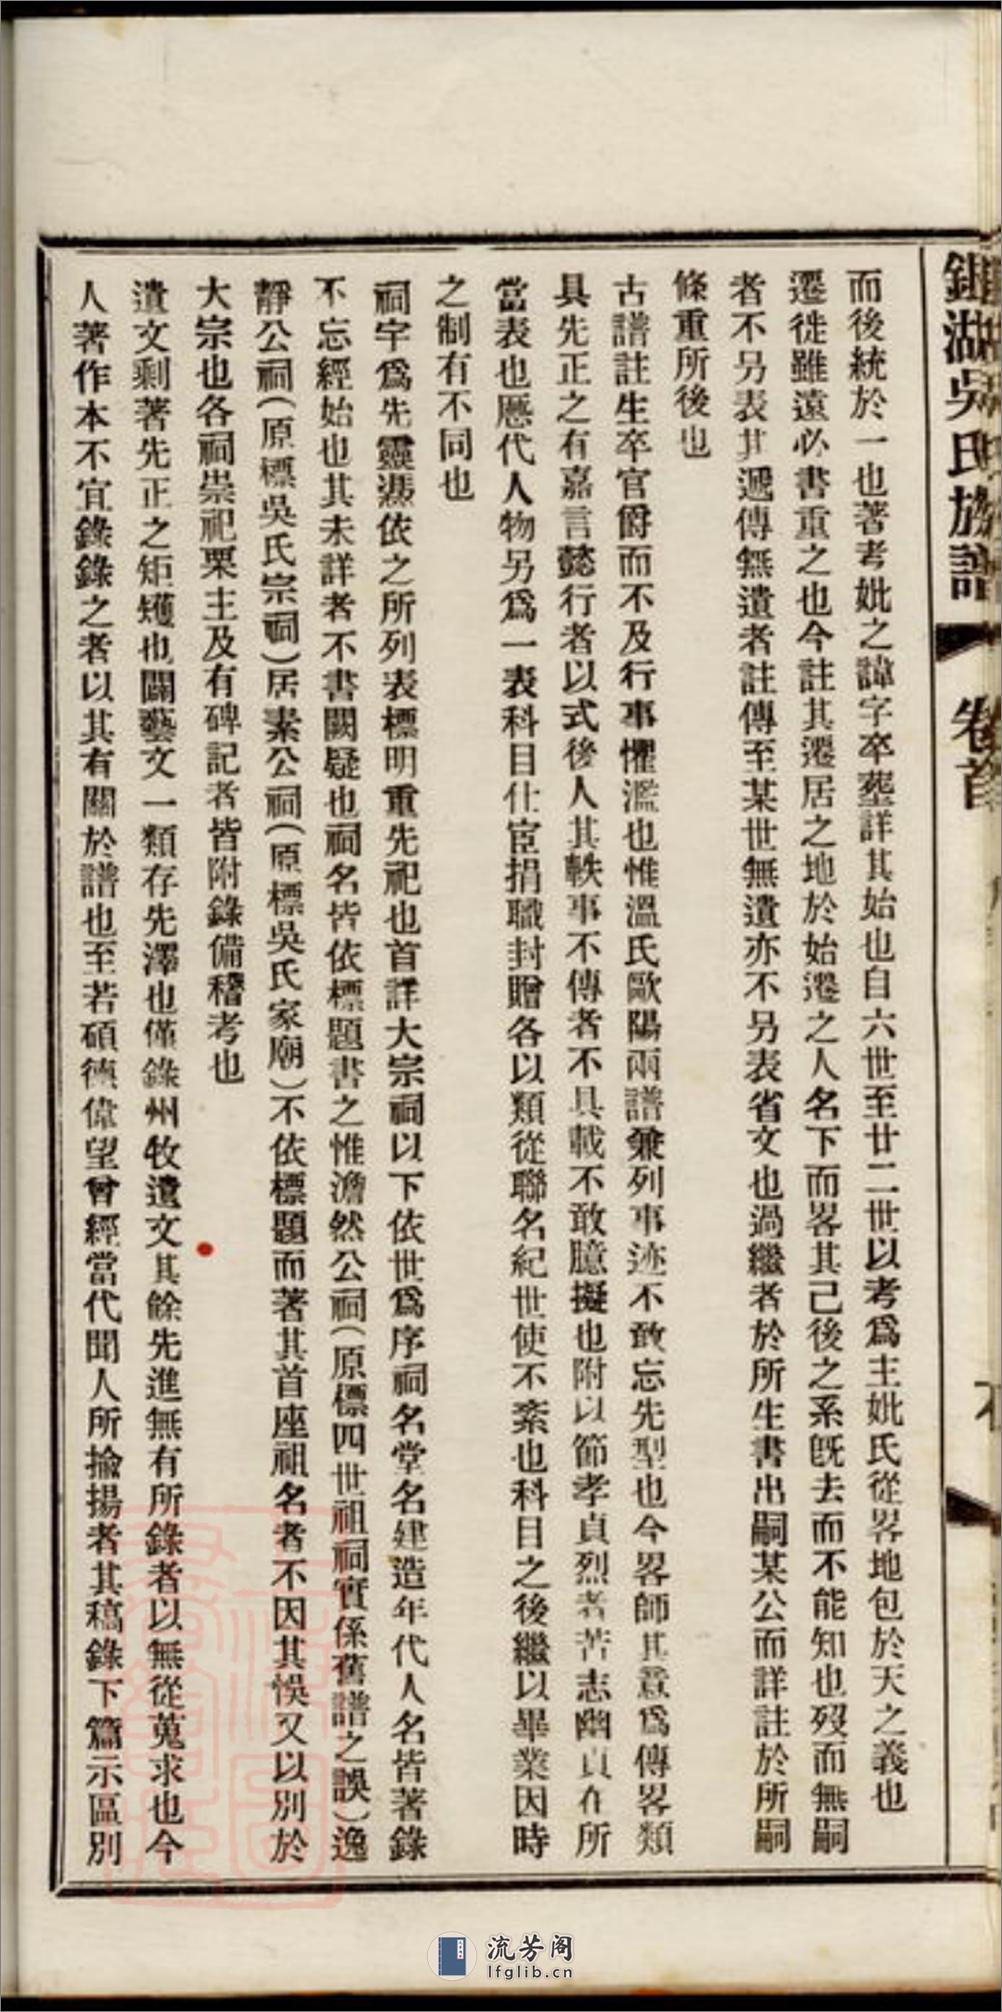 湖吳氏族譜 卷首
而後統於一也著考妣之諱字卒塟詳其始也自六世至廿二世以考爲主妣氏從畧地包於天之義也
遷徙雖遠必書重之也今註其遷居之地於始遷之人名下而畧其己後之系旣去而不能知也歿而無嗣
者不另表其遞傳無遺者註傳至某世無遺亦不另表省文也過繼者於所生書出嗣某公而詳註於所嗣
條重所後也
古譜註生卒官爵而不及行事懼濫也惟溫氏歐陽兩譜兼列事迹不敢忘先型也今畧師其意爲傳畧類
具先正之有嘉言懿行者以式後人其軼事不傳者不具載不敢臆擬也附以節孝貞烈者苦志幽貞在所
當表也歷代人物另爲一表科目仕宦捐職封贈各以類從聯名紀世使不紊也科目之後繼以畢業因時
之制有不同也
祠宇爲先靈憑依之所列表標明重先祀也首詳大宗祠以下依世爲序祠名堂名建造年代人名皆著錄
不忘經始也其未詳者不書闕疑也祠名皆依標題書之惟澹然公祠(原標四世祖祠實係舊譜之誤)逸
靜公祠(原標吳氏宗祠)居素公祠(原標吳氏家廟)不依標題而著其首座祖名者不因其悞又以別於
大宗也各祠崇祀栗主及有碑記者皆附錄備稽考也
遺文剩著先正之矩矱也闢藝文一類存先澤也僅錄州牧遺文其餘先進無有所錄者以無從蒐求也今
人著作本不宜錄錄之者以其有關於譜也至若碩德偉望曾經當代聞人所揄揚者其稿錄下篇示區別
流芳阁
lfglib.cn